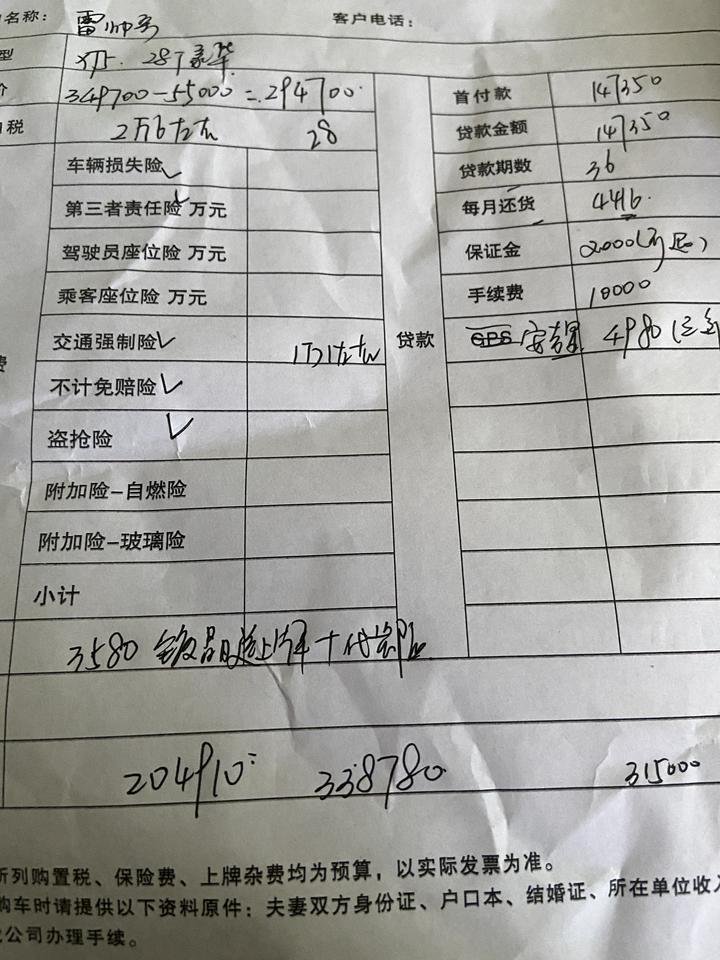 名称: 雷帅哥 客户电话:
型 XT5. 28T豪华
价 349700-55000=294700. 首付款 147350
税 2万6左右 28 贷款金额 147350
车辆损失险✓ 贷款期数 36
第三者责任险✓ 万元 每月还贷 4416.
驾驶员座位险 万元 保证金 2000(可退)
乘客座位险 万元 手续费 10000
费 交通强制险✓ 1万1左右 贷款 GPS 4980
不计免赔险✓
盗抢险 ✓
附加险-自燃险
附加险-玻璃险
小计
3580
204910 338780 315000
所列购置税、保险费、上牌杂费均为预算，以实际发票为准。
购车时请提供以下资料原件：夫妻双方身份证、户口本、结婚证、所在单位收入
公司办理手续。